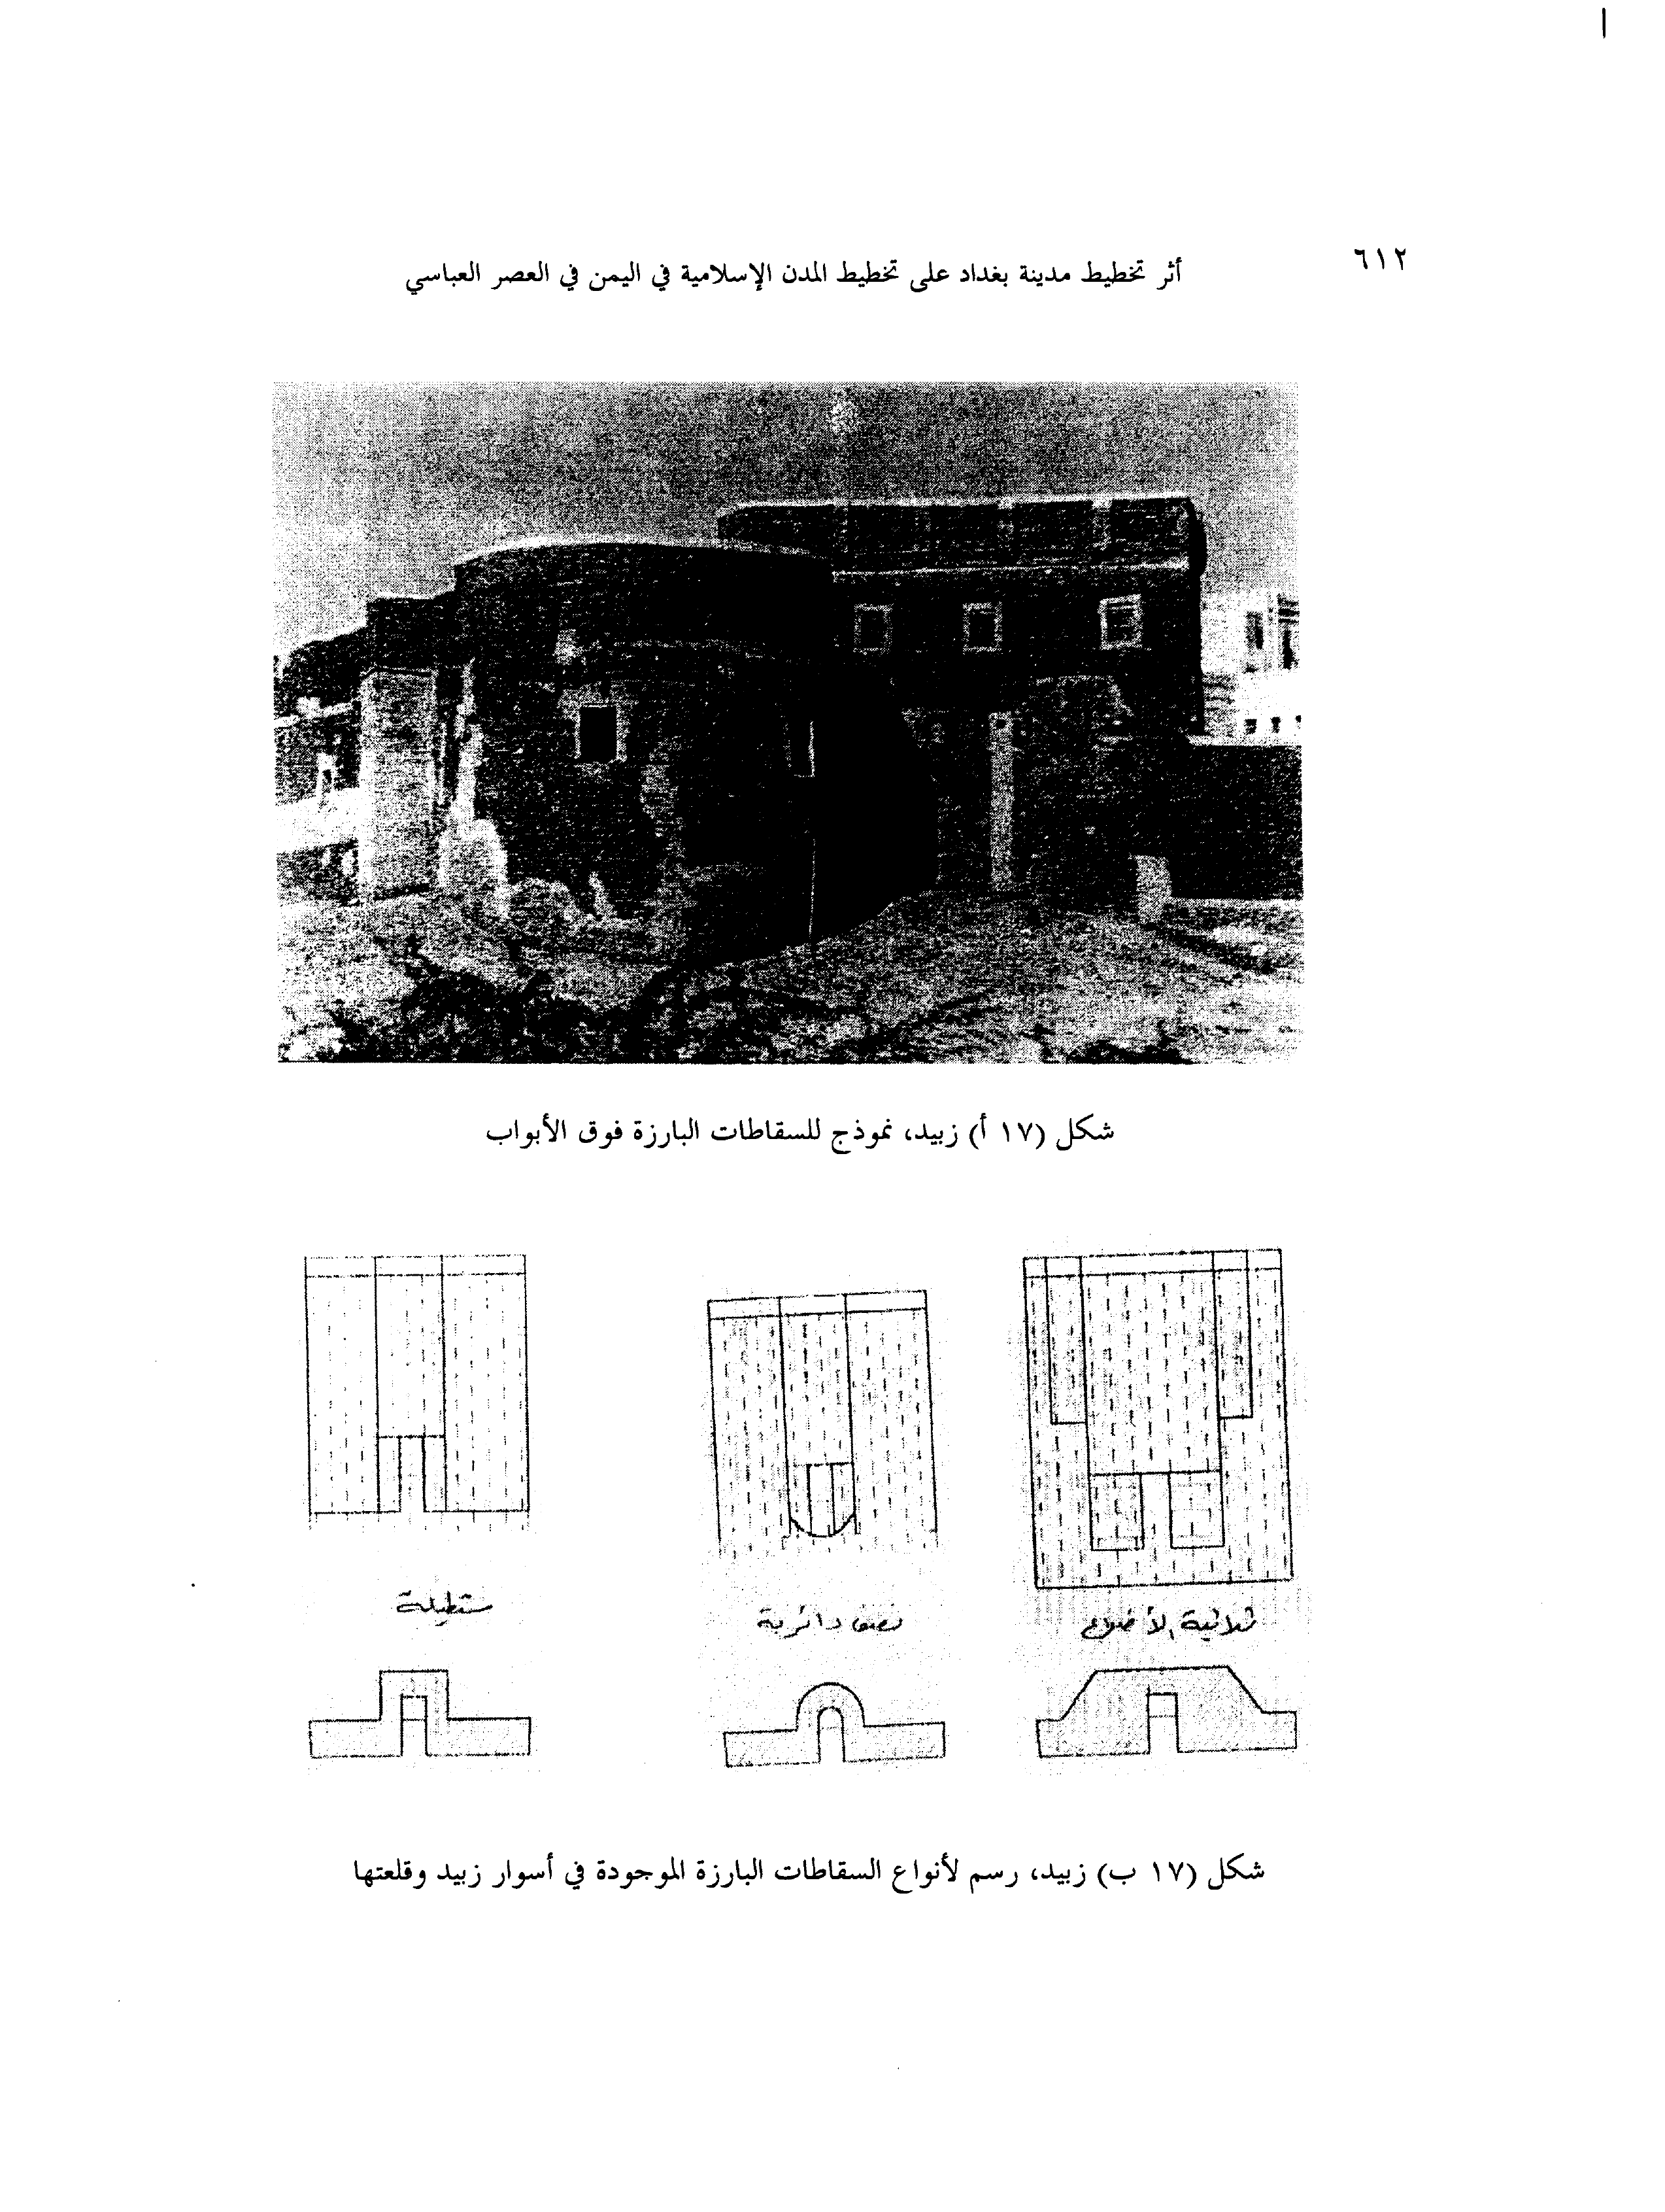 ٦١٢
أثر تخطيط مدينة بغداد على تخطيط المدن الإسلامية في اليمن في العصر العباسي
شكل (١٧ أ) زبيد، نموذج للسقاطات البارزة فوق الأبواب
ثلاثية الأضلاع
نصف دائرية
مستطيلة
شكل (١٧ ب) زبيد، رسم لأنواع السقاطات البارزة الموجودة في أسوار زبيد وقلعتها